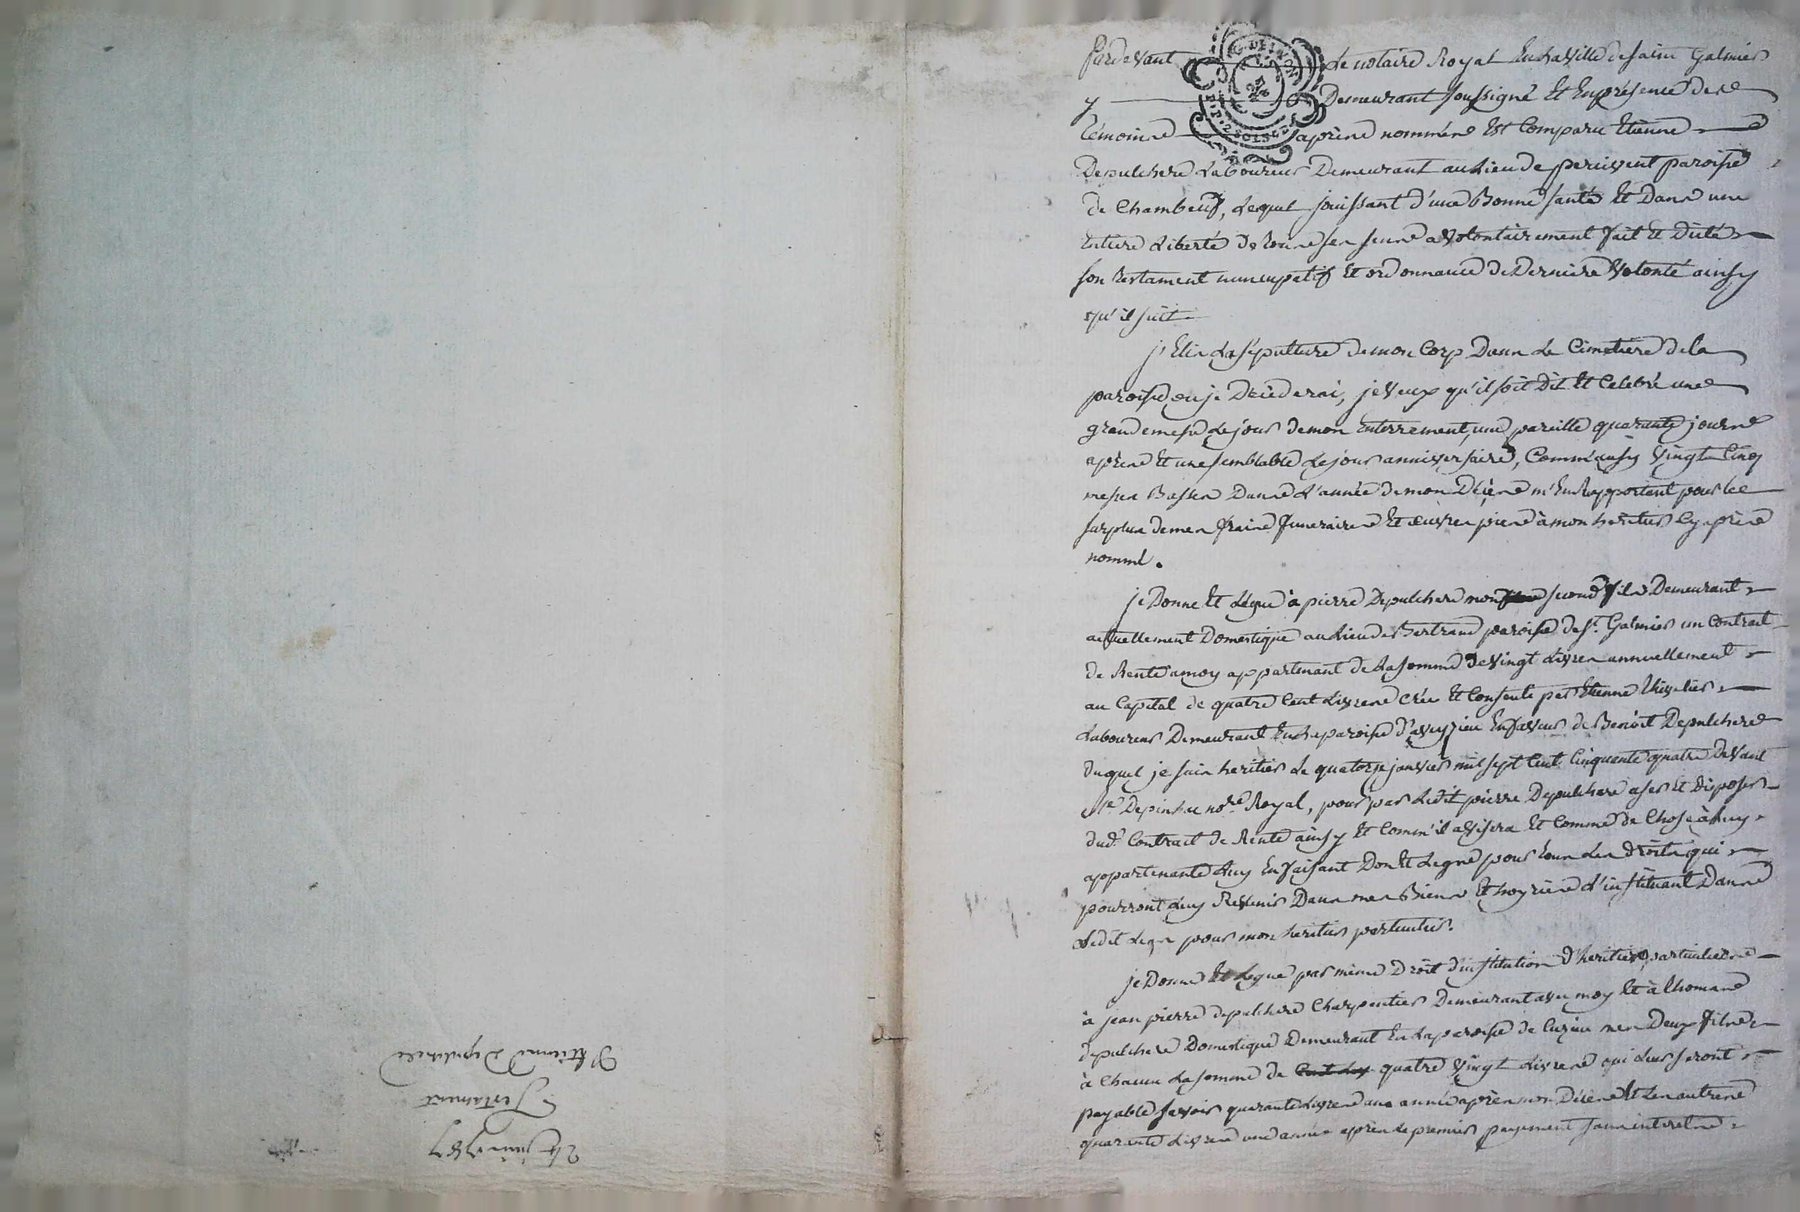 24 juin 1787
Testament
d'Etienne Depulchere
G. DE LYON
Pardevant Le notaire Royal En La Ville de Saint Galmier
y Demeurant soussigné Et En présence des
témoins apres nommés Est Comparu Etienne
Depulchere Laboureur Demeurant au Lieu de perivent paroisse
de Chambeuf, Lequel jouissant d'une Bonne santé Et Dans une
Entiere Liberté de tous ses sens a Volontairement fait Et Dicté
son testament nuncupatif Et ordonnance de Derniere Volonté ainsy
qu'il suit.
j'Elis La sépulture de mon Corp Dans Le Cimetiere de la
paroisse ou je Décéderai, je Veux qu'il soit Dit Et Celebré une
grande messe Le jour de mon Enterrement, une pareille quarante jours
apres Et une semblable Le jour anniversaire, Comm'aussy Vingt Cinq
messes Basses Dans L'année de mon Décès m'En Rapportant pour le
surplus de mes frais funeraires Et œuvres pies à mon heritier Cy apres
nommé.
je Donne Et Legue à pierre Depulchere mon second fils Demeurant
actuellement Domestique au Lieu de Bertrand paroisse de St. Galmier un Contrat
de Rente a moy appartenant de La somme de Vingt Livres annuellement
au Capital de quatre Cent Livres Créé Et Consenti par Etienne
Laboureur Demeurant En La paroisse d'aveyzieu En faveur de Benoit Depulchere
duquel je suis heritier Le quatorze janvier mil sept Cent Cinquante quatre devant
Me. Depinhac nore. Royal, pour par Ledit pierre Depulchere user Et disposer
dud. Contrat de Rente ainsy Et Comm'il avisera Et Comme de Chose à Luy
appartenante Luy En faisant Don Et Legs pour tous Les Droits qui
pourront Luy Revenir Dans mes Biens Et hoyries L'instituant Dans
Ledit Legs pour mon heritier particulier.
je Donne Et Legue par même Droit d'institution d'heritiers particuliers
à jean pierre depulchere Charpentier Demeurant avec moy Et à thomas
depulchere Domestique Demeurant En La paroisse de Cuzieu mes Deux fils
à Chacun La somme de quatre Vingt Livres qui Leur seront
payable savoir quarante Livres une année après mon Décès Et Les autres
quarante Livres une année après Le premier payement sans interets